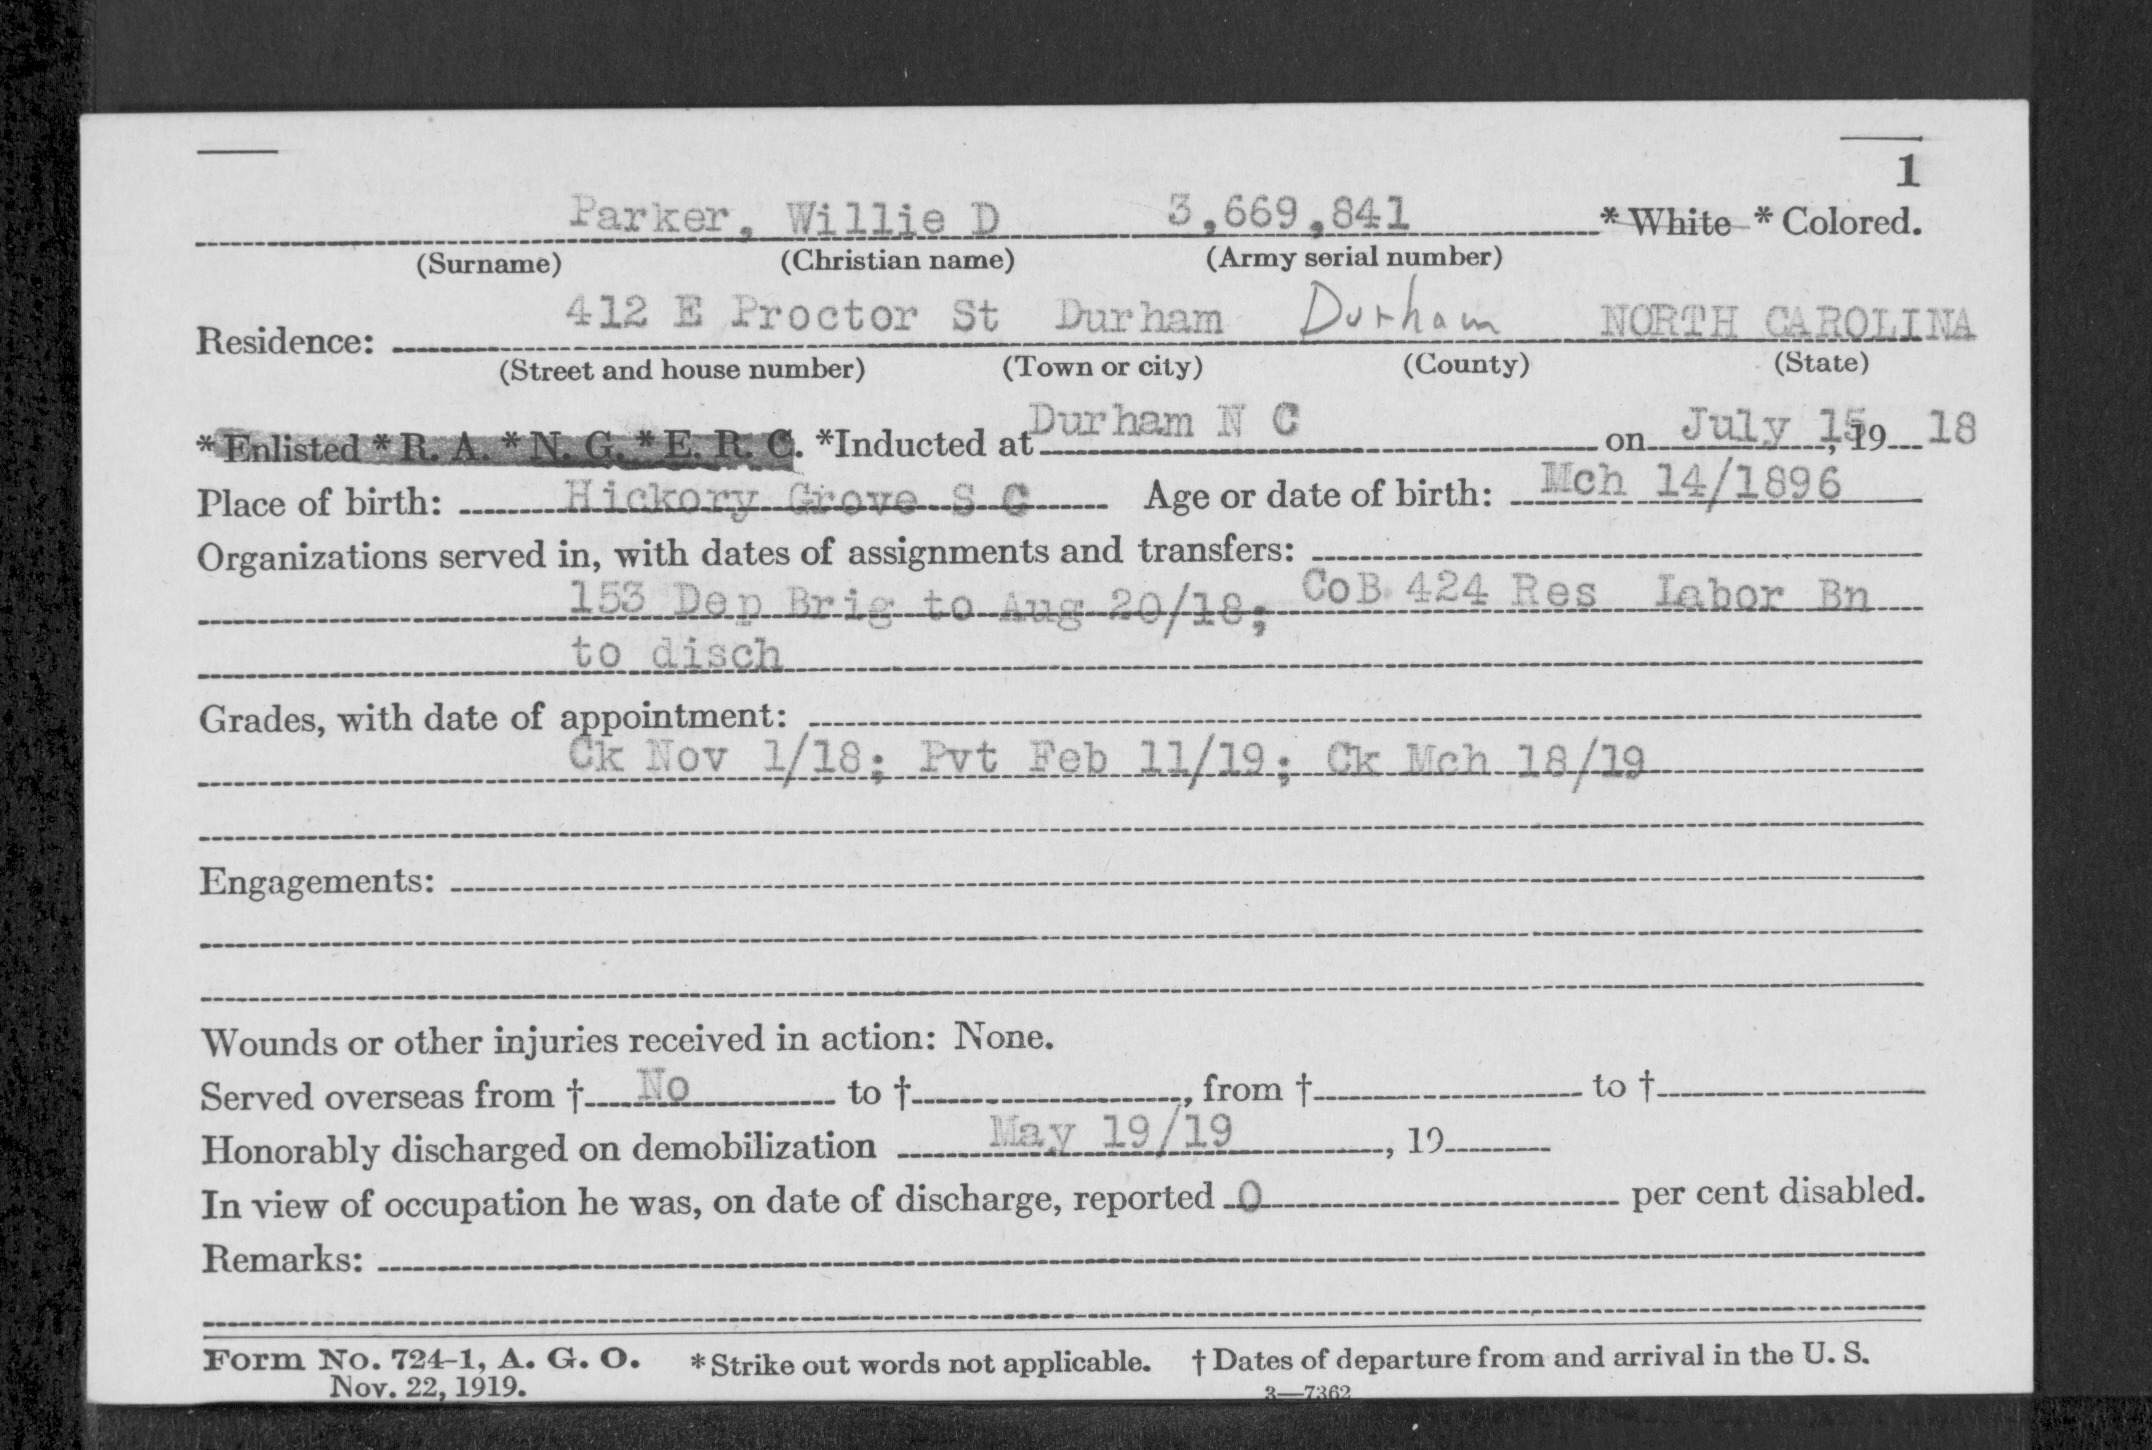 1
Parker, Willie D 3,669,841 * White * Colored.
(Surname) (Christian name) (Army serial number)
Residence: 412 E Proctor St Durham Durham NORTH CAROLINA
(Street and house number) (Town or city) (County) (State)
* Enlisted * R. A. * N. G. * E. R. C. *Inducted at Durham N C on July 15, 1918
Place of birth: Hickory Grove S C Age or date of birth: Mch 14/1896
Organizations served in, with dates of assignments and transfers:
153 Dep Brig to Aug 20/18; CoB 424 Res Labor Bn
to disch
Grades, with date of appointment:
Ck Nov 1/18; Pvt Feb 11/19; Ck Mch 18/19
Engagements:
Wounds or other injuries received in action: None.
Served overseas from † No to † , from † to †
Honorably discharged on demobilization May 19/19 , 19
In view of occupation he was, on date of discharge, reported 0 per cent disabled.
Remarks:
Form No. 724-1, A. G. O. * Strike out words not applicable. † Dates of departure from and arrival in the U. S.
Nov. 22, 1919. 3—7362